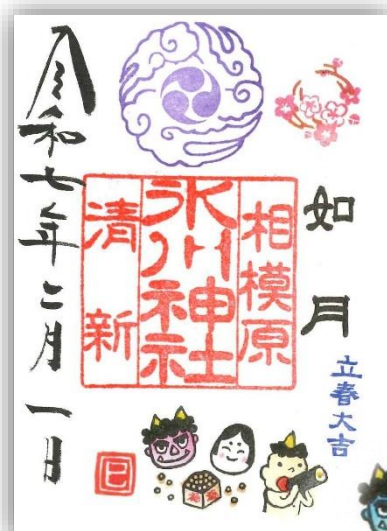 如月
立春大吉
相模原
氷川神社
清新
令和七年二月一日
巳